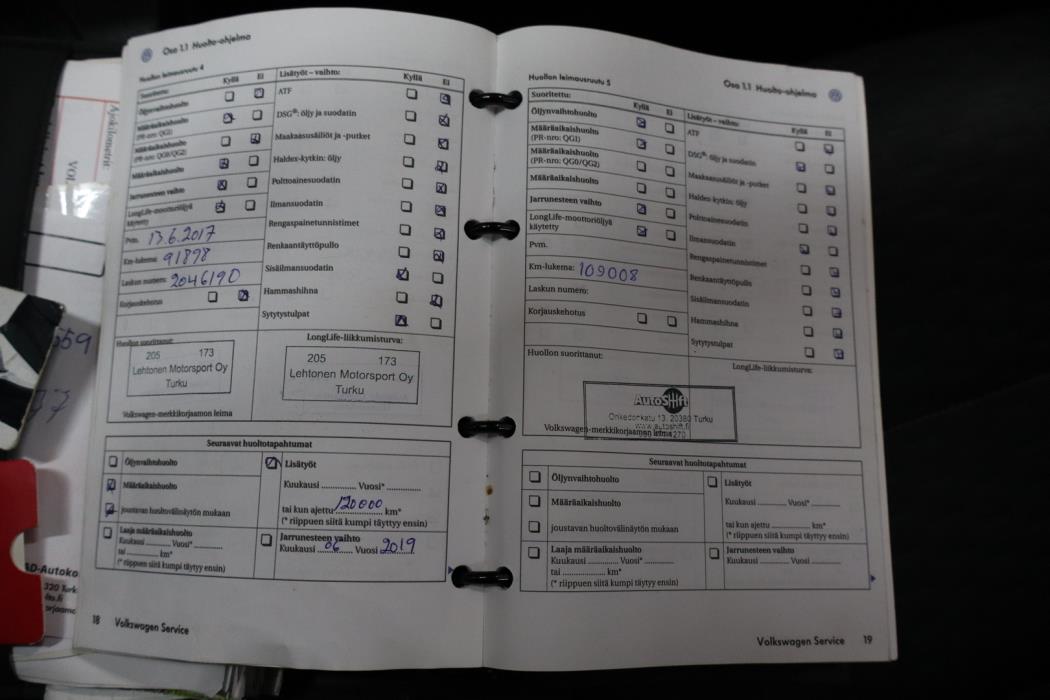 Osa 1.1 Huolto-ohjelma
Huollon leimausruutu 4
Suoritettu: Kyllä Ei
Öljynvaihtohuolto
Määräaikaishuolto
(PR-nro: QG1)
Määräaikaishuolto
(PR-nro: QG0/QG2)
Määräaikaishuolto
Jarrunesteen vaihto
LongLife-moottoriöljyä
käytetty
Pvm. 13.6.2017
Km-lukema: 91898
Laskun numero: 2046190
Korjauskehotus
Lisätyöt – vaihto: Kyllä Ei
ATF
DSG®: öljy ja suodatin
Maakaasusäiliöt ja -putket
Haldex-kytkin: öljy
Polttoainesuodatin
Ilmansuodatin
Rengaspainetunnistimet
Renkaantäyttöpullo
Sisäilmansuodatin
Hammashihna
Sytytystulpat
Huollon suorittanut:
205 173
Lehtonen Motorsport Oy
Turku
Volkswagen-merkkikorjaamon leima
LongLife-liikkumisturva:
205 173
Lehtonen Motorsport Oy
Turku
Seuraavat huoltotapahtumat
Öljynvaihtohuolto
Määräaikaishuolto
joustavan huoltovälinäytön mukaan
Laaja määräaikaishuolto
Kuukausi .......... Vuosi* ..........
tai .......... km*
(* riippuen siitä kumpi täytyy ensin)
Lisätyöt
Kuukausi .......... Vuosi* ..........
tai kun ajettu 120000 km*
(* riippuen siitä kumpi täyttyy ensin)
Jarrunesteen vaihto
Kuukausi 06 Vuosi 2019
18 Volkswagen Service
Osa 1.1 Huolto-ohjelma
Huollon leimausruutu 5
Suoritettu: Kyllä Ei
Öljynvaihtohuolto
Määräaikaishuolto
(PR-nro: QG1)
Määräaikaishuolto
(PR-nro: QG0/QG2)
Määräaikaishuolto
Jarrunesteen vaihto
LongLife-moottoriöljyä
käytetty
Pvm.
Km-lukema: 109008
Laskun numero:
Korjauskehotus
Lisätyöt – vaihto: Kyllä Ei
ATF
DSG®: öljy ja suodatin
Maakaasusäiliöt ja -putket
Haldex-kytkin: öljy
Polttoainesuodatin
Ilmansuodatin
Rengaspainetunnistimet
Renkaantäyttöpullo
Sisäilmansuodatin
Hammashihna
Sytytystulpat
Huollon suorittanut:
AutoShift
Orikedonkatu 13, 20380 Turku
www.autoshift.fi
Volkswagen-merkkikorjaamon leima
LongLife-liikkumisturva:
Seuraavat huoltotapahtumat
Öljynvaihtohuolto
Määräaikaishuolto
joustavan huoltovälinäytön mukaan
Laaja määräaikaishuolto
Kuukausi .......... Vuosi* ..........
tai .......... km*
(* riippuen siitä kumpi täytyy ensin)
Lisätyöt
Kuukausi .......... Vuosi* ..........
tai kun ajettu .......... km*
(* riippuen siitä kumpi täyttyy ensin)
Jarrunesteen vaihto
Kuukausi .......... Vuosi ..........
Volkswagen Service 19
Ajokilometrit: